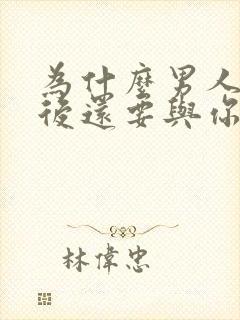 為什麼男人
後還要與你
林偉忠